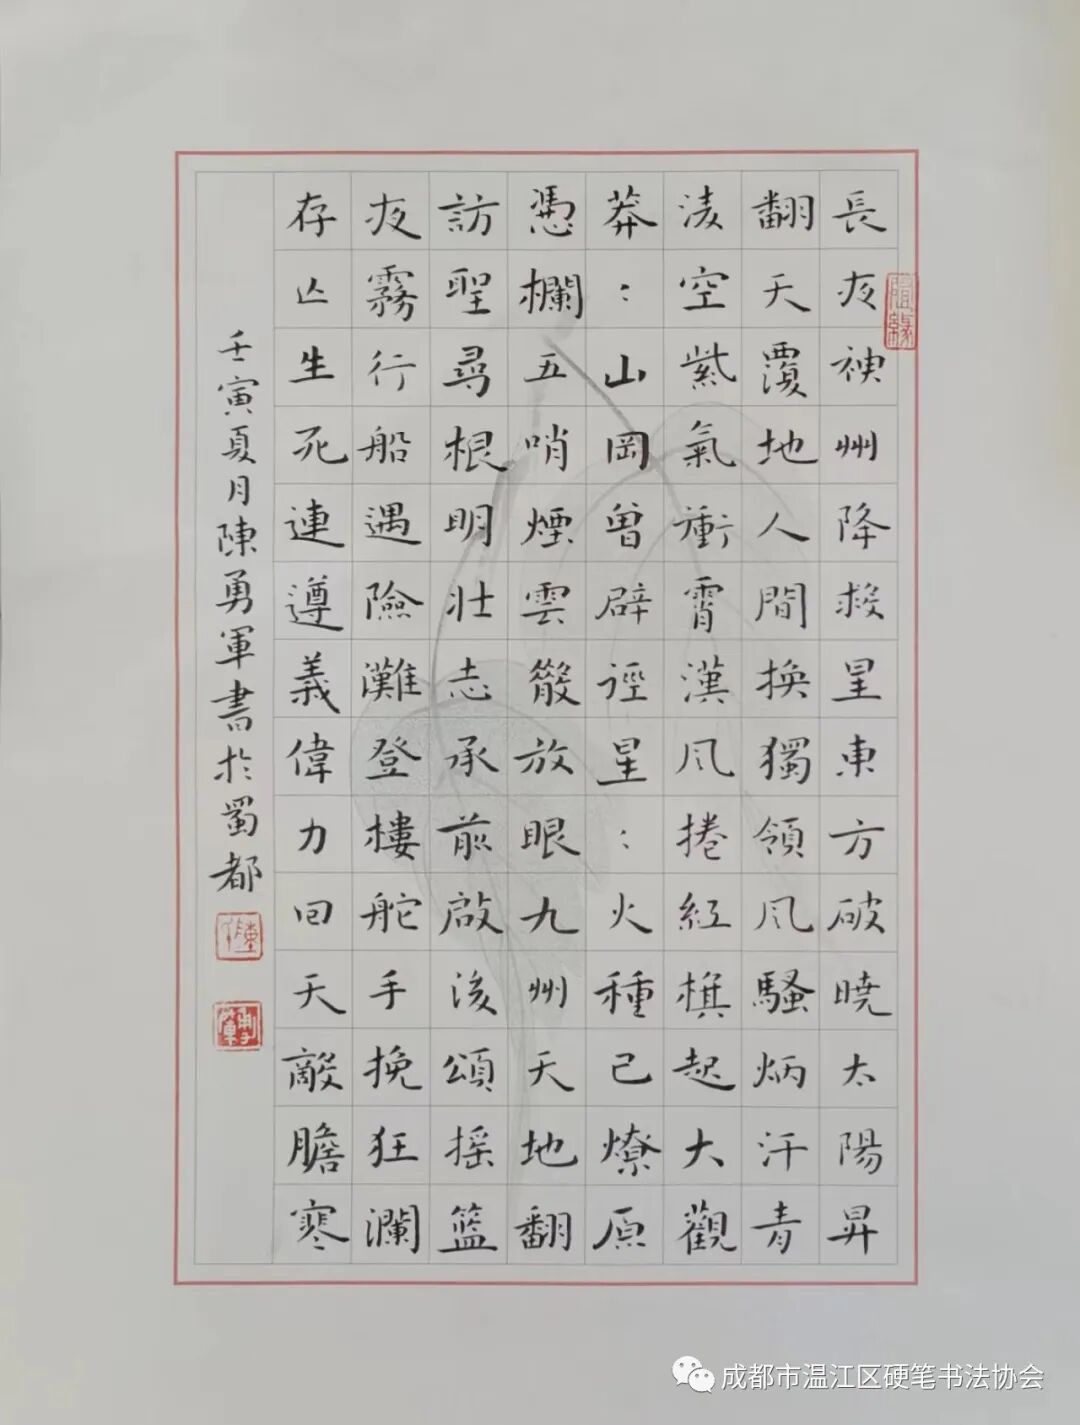 長夜神州降救星東方破曉太陽昇
翻天覆地人間換獨領風騷炳汗青
淩空紫氣衝霄漢風捲紅旗起大觀
莽：山岡曾辟徑星：火種已燎原
憑欄五哨煙雲散放眼九州天地翻
訪聖尋根明壯志承前啟後頌搖籃
夜霧行船遇險灘登樓舵手挽狂瀾
存亡生死連遵義偉力回天敵膽寒
壬寅夏月陳勇軍書於蜀都
隨緣
成都市温江区硬笔书法协会